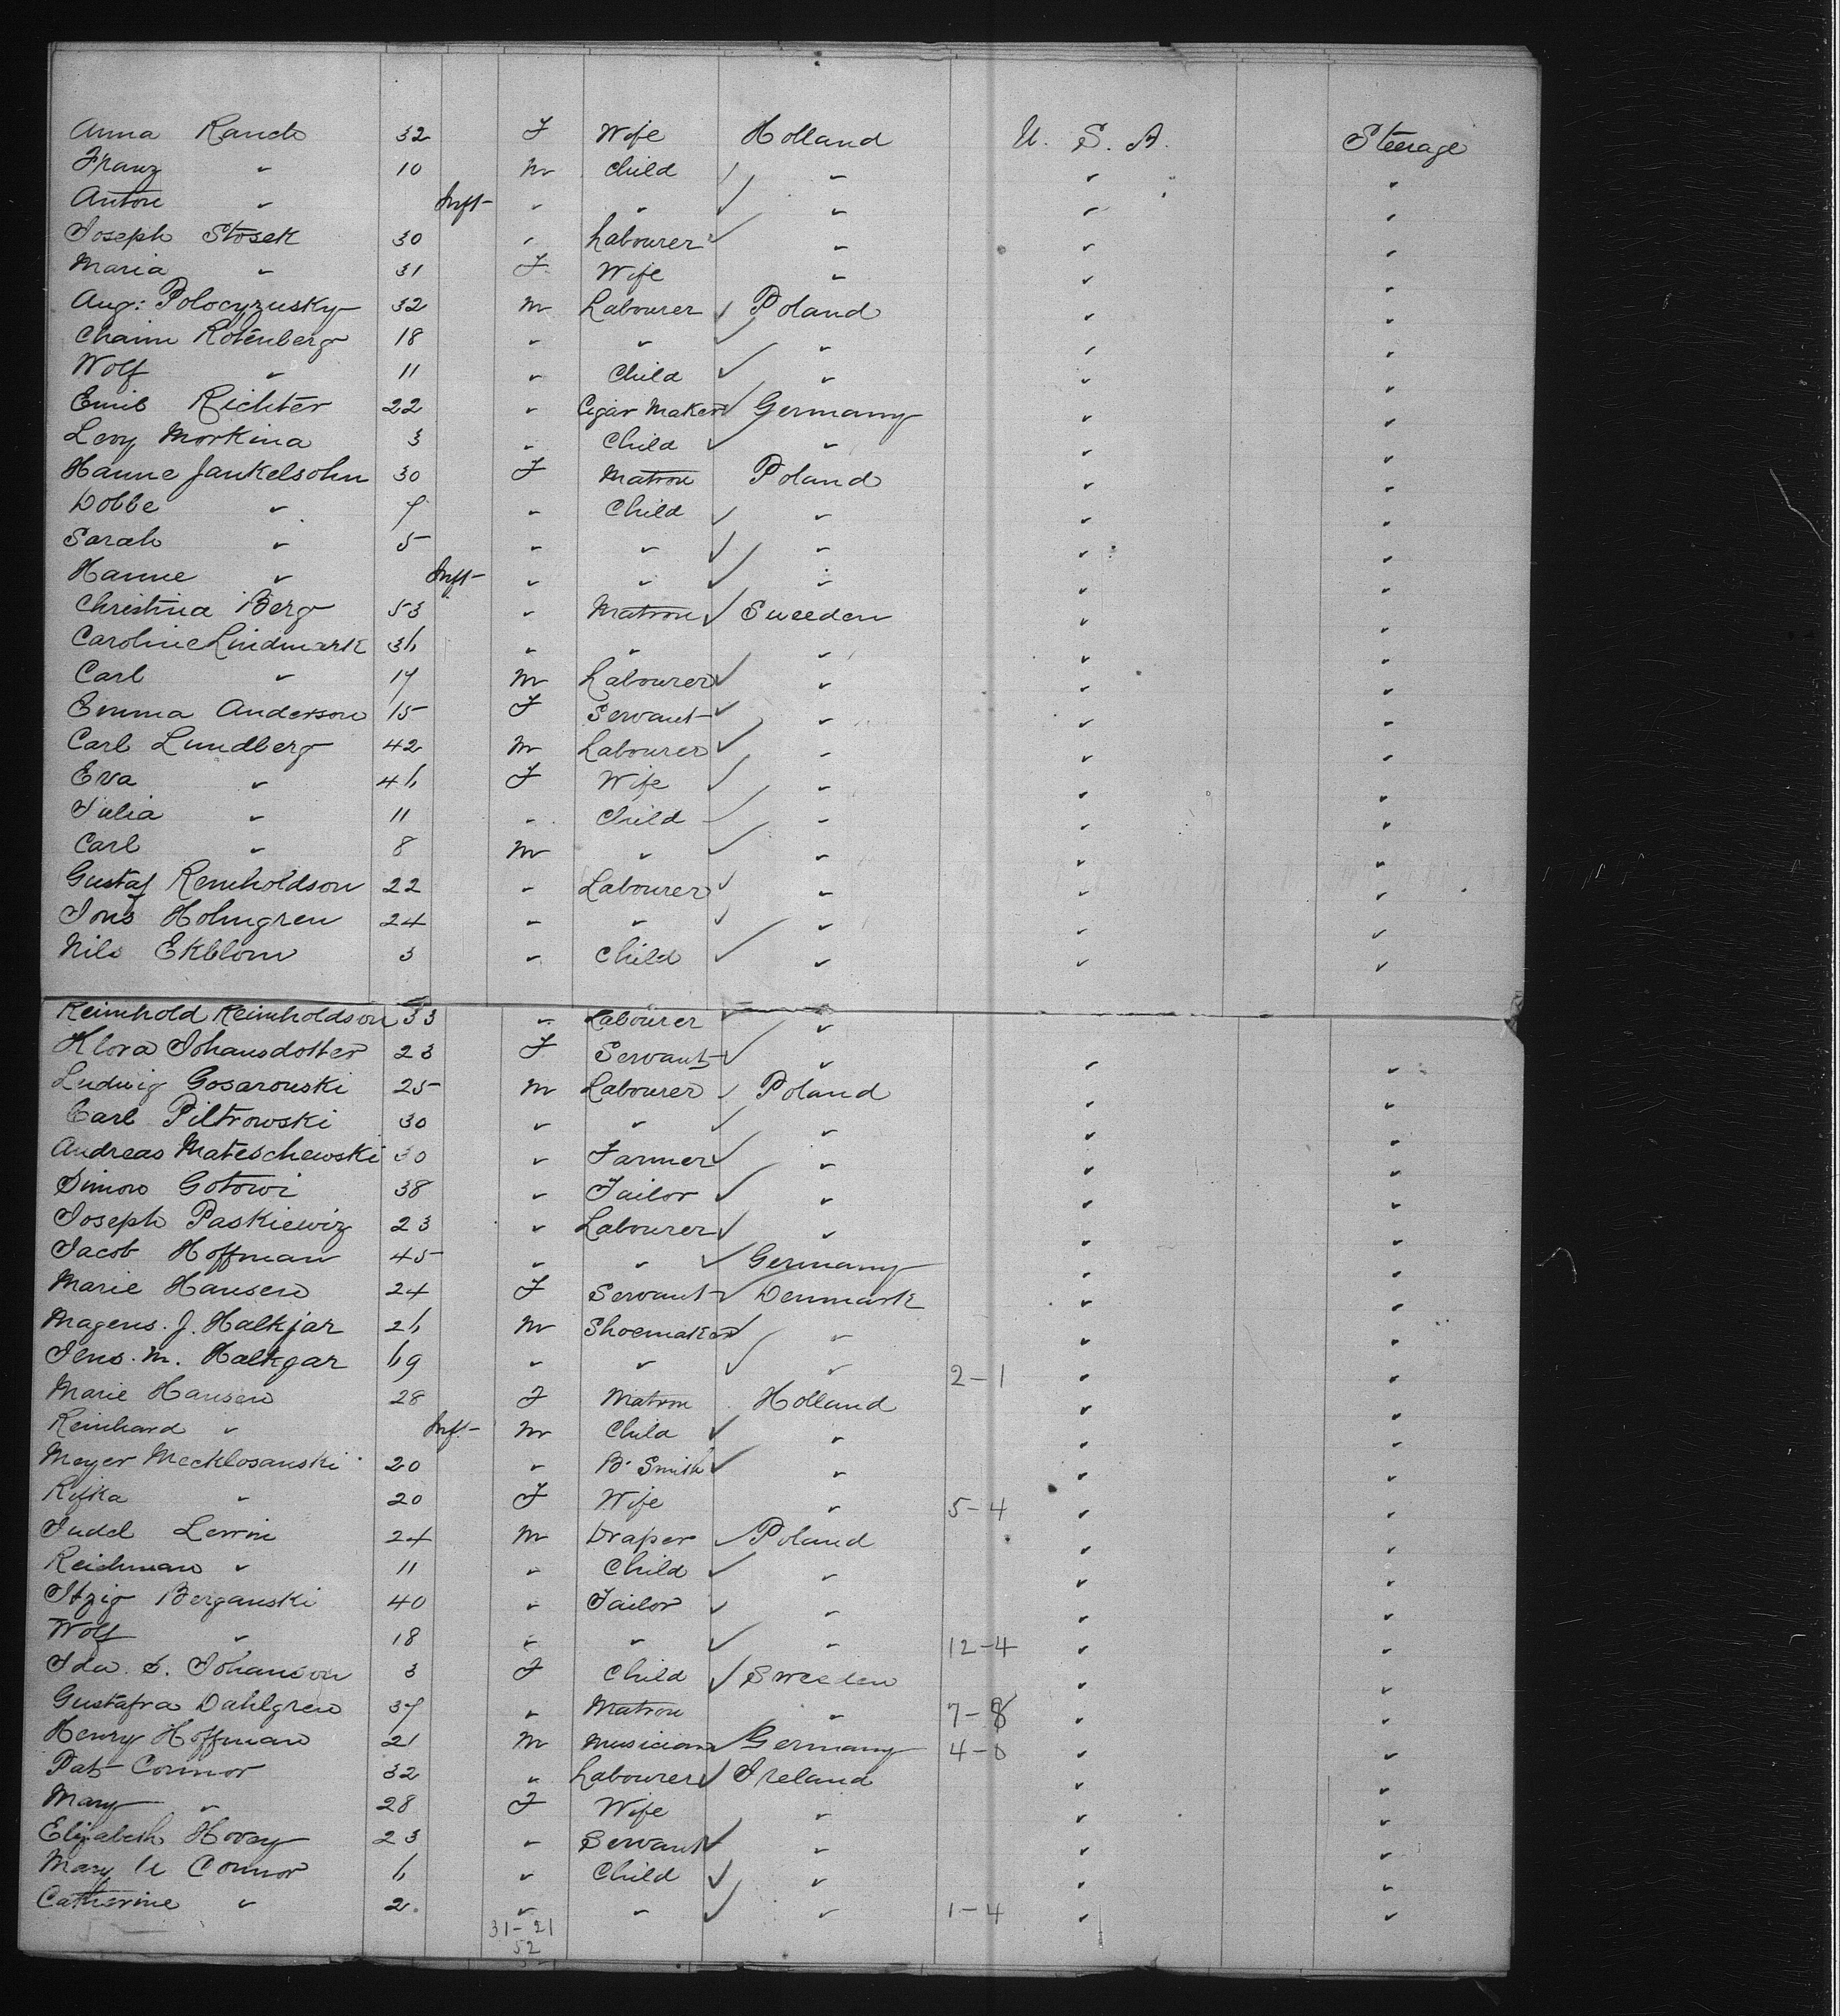 Anna Rauch 32 F Wife Holland U. S. A. Steerage
Franz " 10 M Child " " "
Anton " Inft " " " " "
Joseph Stosek 30 " Labourer " " "
Maria " 31 F Wife " " "
Aug: Polocyzusky 32 M Labourer Poland " "
Chaim Rotenberg 18 " " " " "
Wolf " 11 " Child " " "
Emil Richter 22 " Cigar Maker Germany " "
Levy Morkina 3 " Child " " "
Hanne Jankelsohn 30 F Matron Poland " "
Dobbe " 7 " Child " " "
Sarah " 5 " " " " "
Hanne " Inft " " " " "
Christina Berg 53 " Matron Sweeden " "
Caroline Lindmark 36 " " " " "
Carl " 17 M Labourer " " "
Emma Anderson 15 F Servant " " "
Carl Lundberg 42 M Labourer " " "
Eva " 46 F Wife " " "
Julia " 11 " Child " " "
Carl " 8 M " " " "
Gustaf Reinholdson 22 " Labourer " " "
Jons Holmgren 24 " " " " "
Nils Ekblom 3 " Child " " "
Reinhold Reinholdson 33 " Labourer "
Klora Johansdotter 23 F Servant " " "
Ludwig Gosarouski 25 M Labourer Poland " "
Carl Piltrowski 30 " " " " "
Andreas Mateschewski 30 " Farmer " " "
Simon Gotowi 38 " Tailor " " "
Joseph Paskiewiz 23 " Labourer " " "
Jacob Hoffman 45 " " Germany " "
Marie Hansen 24 F Servant Denmark " "
Magens. J. Halkjar 26 M Shoemaker " " "
Jens. M. Halkgar 69 " " " 2-1 " "
Marie Hansen 28 F Matron Holland " "
Reinhard " Inft M Child " " "
Meyer Mecklosanski 20 " B. Smith " " "
Rifka " 20 F Wife " 5-4 " "
Judel Lewin 24 M Draper Poland " "
Reichman " 11 " Child " " "
Itzig Berganski 40 " Tailor " " "
Wolf " 18 " " " 12-4 " "
Ida. S. Johanson 3 F Child Sweeden " "
Gustafra Dahlgren 37 " Matron " 7-8 " "
Henry Hoffman 21 M Musician Germany 4-0 " "
Pat Connor 32 " Labourer Ireland " "
Mary " 28 F Wife " " "
Elizabeth Hovay 23 " Servant " " "
Mary A Connor 6 " Child " " "
Catherine " 2 " " " 1-4 " "
31-21
52